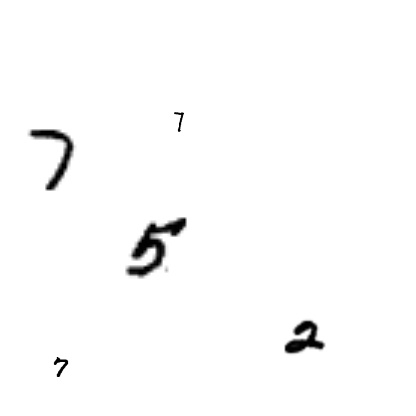 7
7
5
2
7